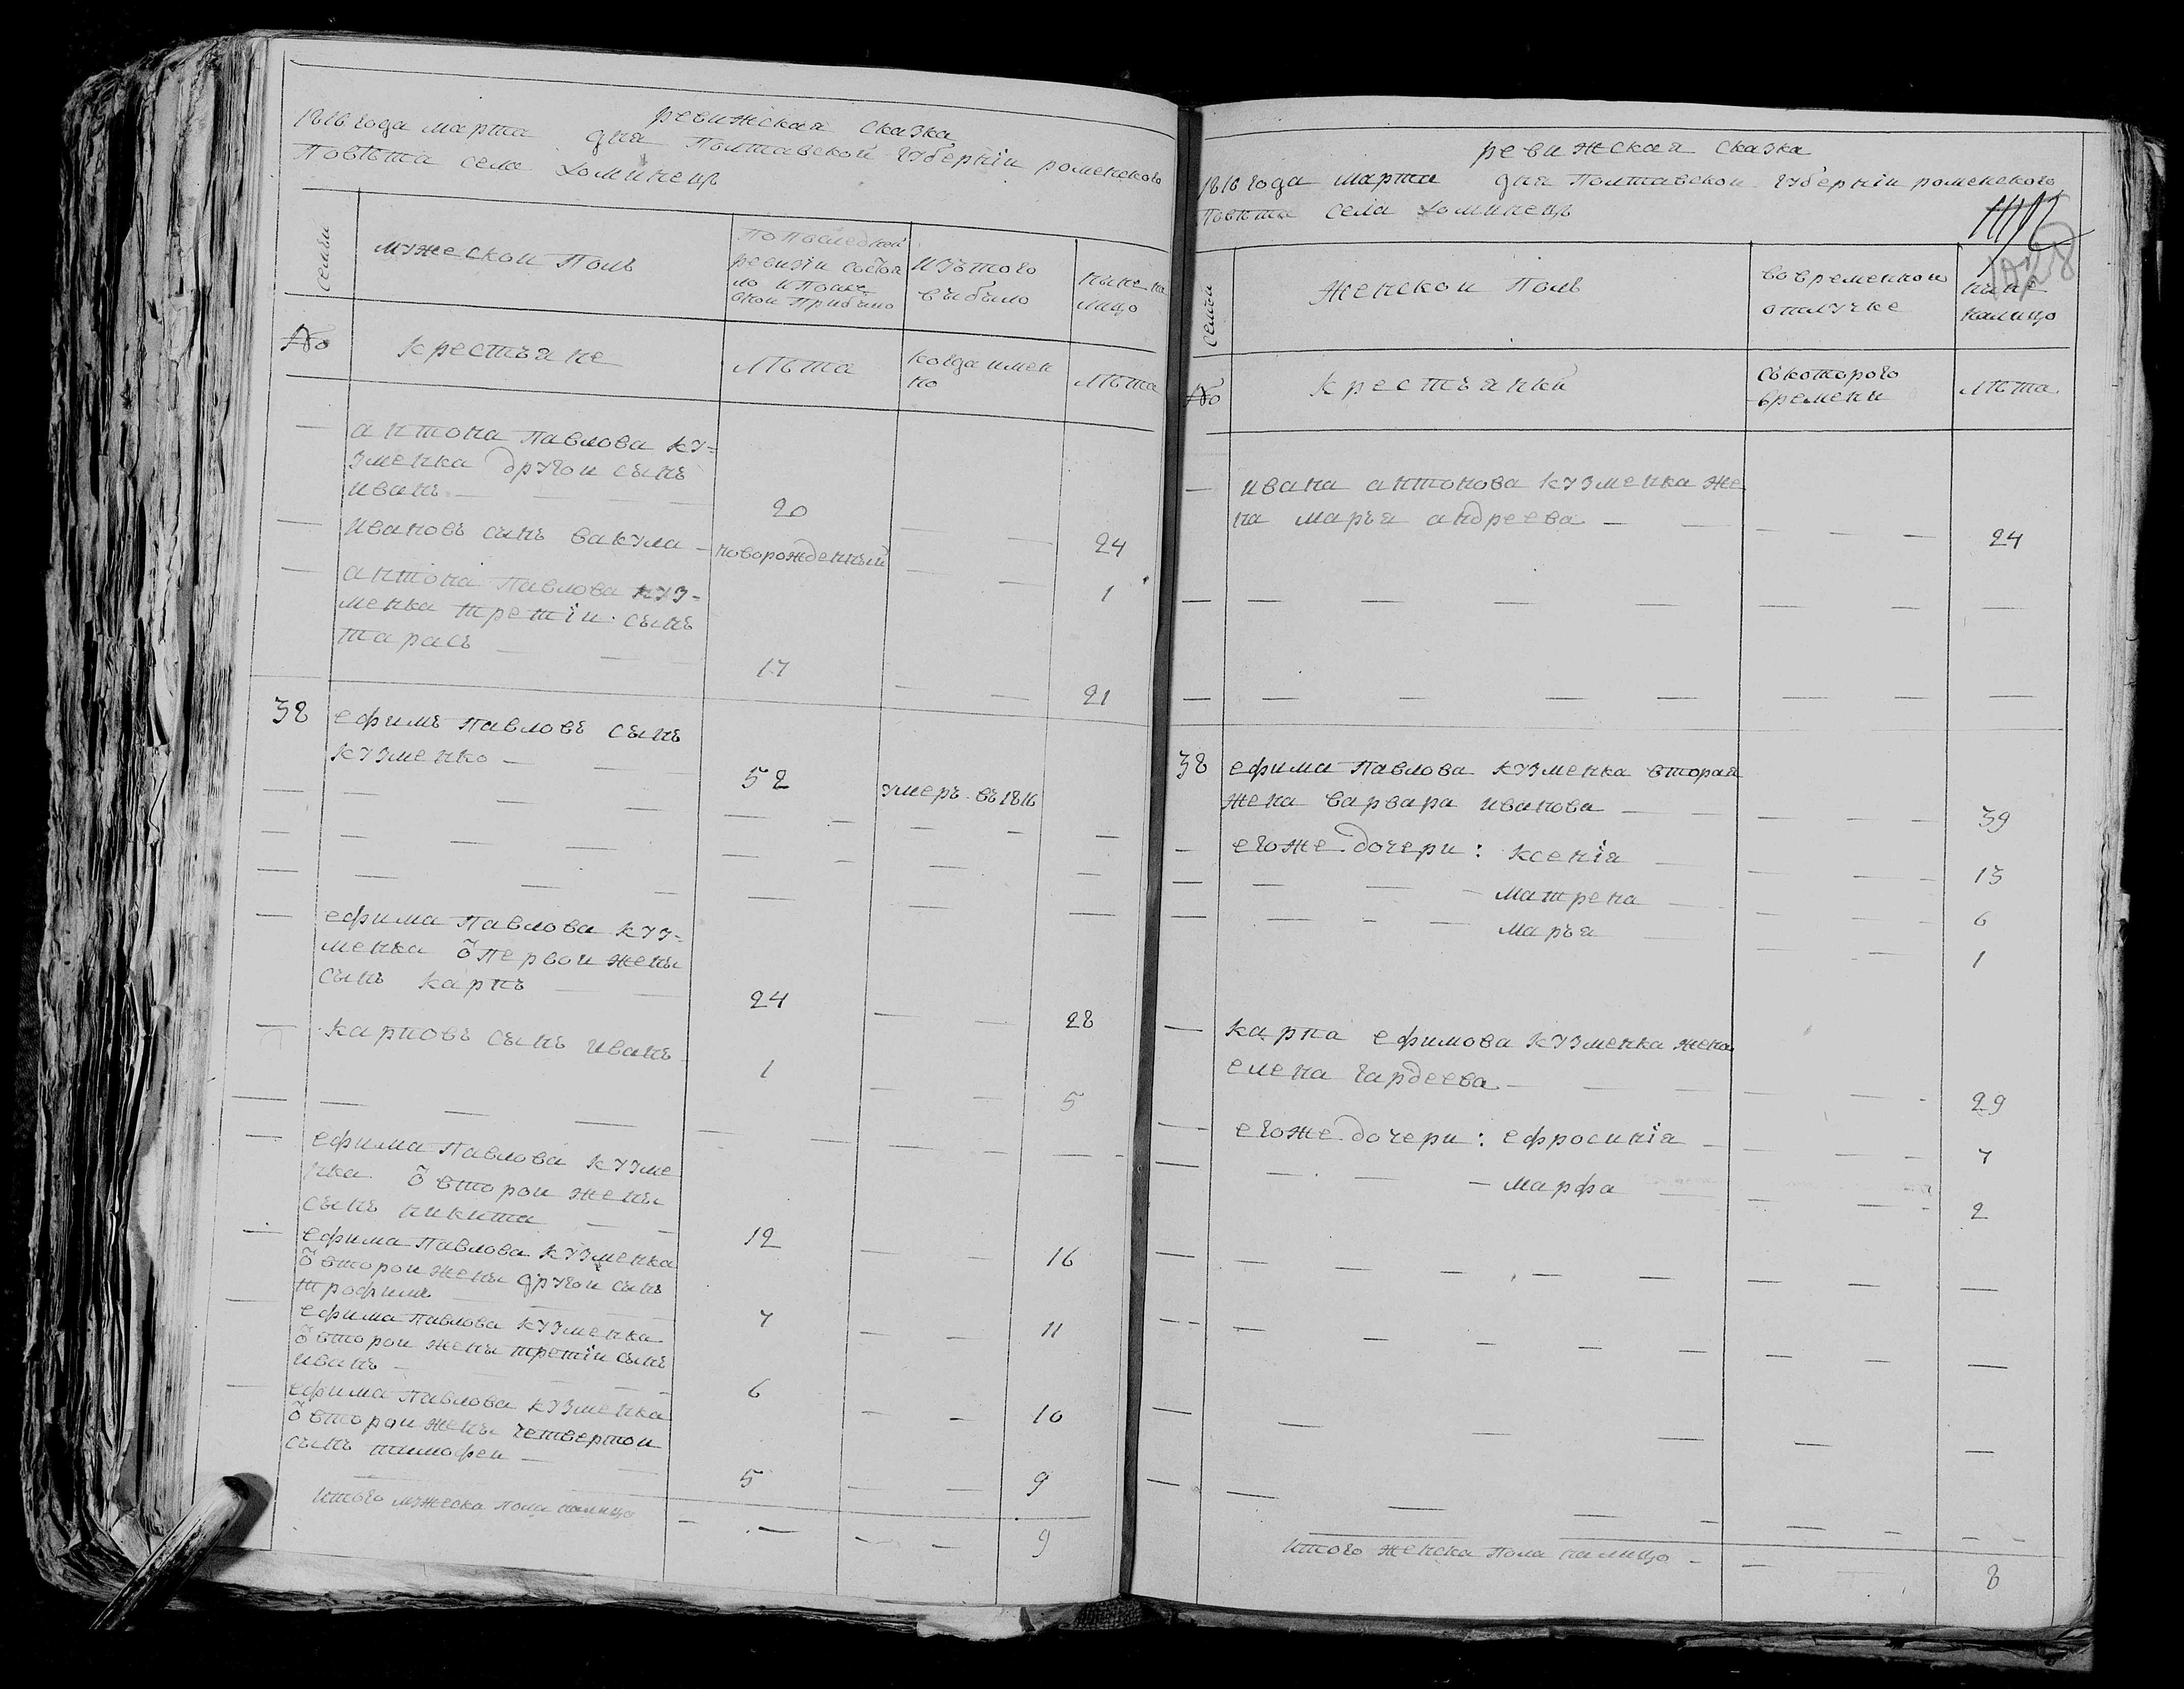 ревижская сказка
1816 года марта дня Полтавской губернiи роменского
Повѣта села хоминець
семьи
мужеской Полъ
По Последней
ревизiи состоя
ло и После
оной Прибыло
Изъ того
выбыло
ныне на
лицо
№
крестьяне
лѣта
когда имен
но
лѣта
— антона Павлова ку=
зменка другои сынъ
иванъ — 20 — — 24
— ивановъ сынъ вакула — новорожденный — — 1
— антона Павлова куз-
менка третiи сынъ
тарасъ — 17 — — 21
38 ефимъ Павловъ сынъ
кузменко — 52 умеръ въ 1816 —
— ефима Павлова куз-
менка ѿ Первои жены
сынъ карпъ — 24 — — 28
— карповъ сынъ иванъ 1 — — 5
— ефима Павлова кузме
нка ѿ второи жены
сынъ никита — 12 — — 16
— ефима Павлова кузменка
ѿ второи жены другои сынъ
трофимъ — 7 — — 11
— ефима Павлова кузменка
ѿ второи жены третiи сынъ
иванъ — 6 — — 10
— ефима Павлова кузменка
ѿ второи жены четвертои
сынъ тимофеи — 5 — — 9
итого мужеска Пола налицо — — — — 9
ревижская сказка
1816 года марта дня Полтавской губернiи роменского
Повѣта села хоминець
семьи
Женской Полъ
во временнои
отлучке
ныне
налицо
№
крестьянки
съ которого
времени
лѣта
— ивана антонова кузменка же
на марья андреева — — — — 24
38 ефима Павлова кузменка вторая
жена варвара иванова — — — 39
— егоже дочери: ксенiя — — — 13
— — — — матрена — — — 6
— — — — марья — — — 1
— карпа ефимова кузменка жена
елена гардеева — — — 29
— егоже дочери: ефросинiя — — — 7
— — — — марфа — — — 2
итого женска Пола налицо — — 8